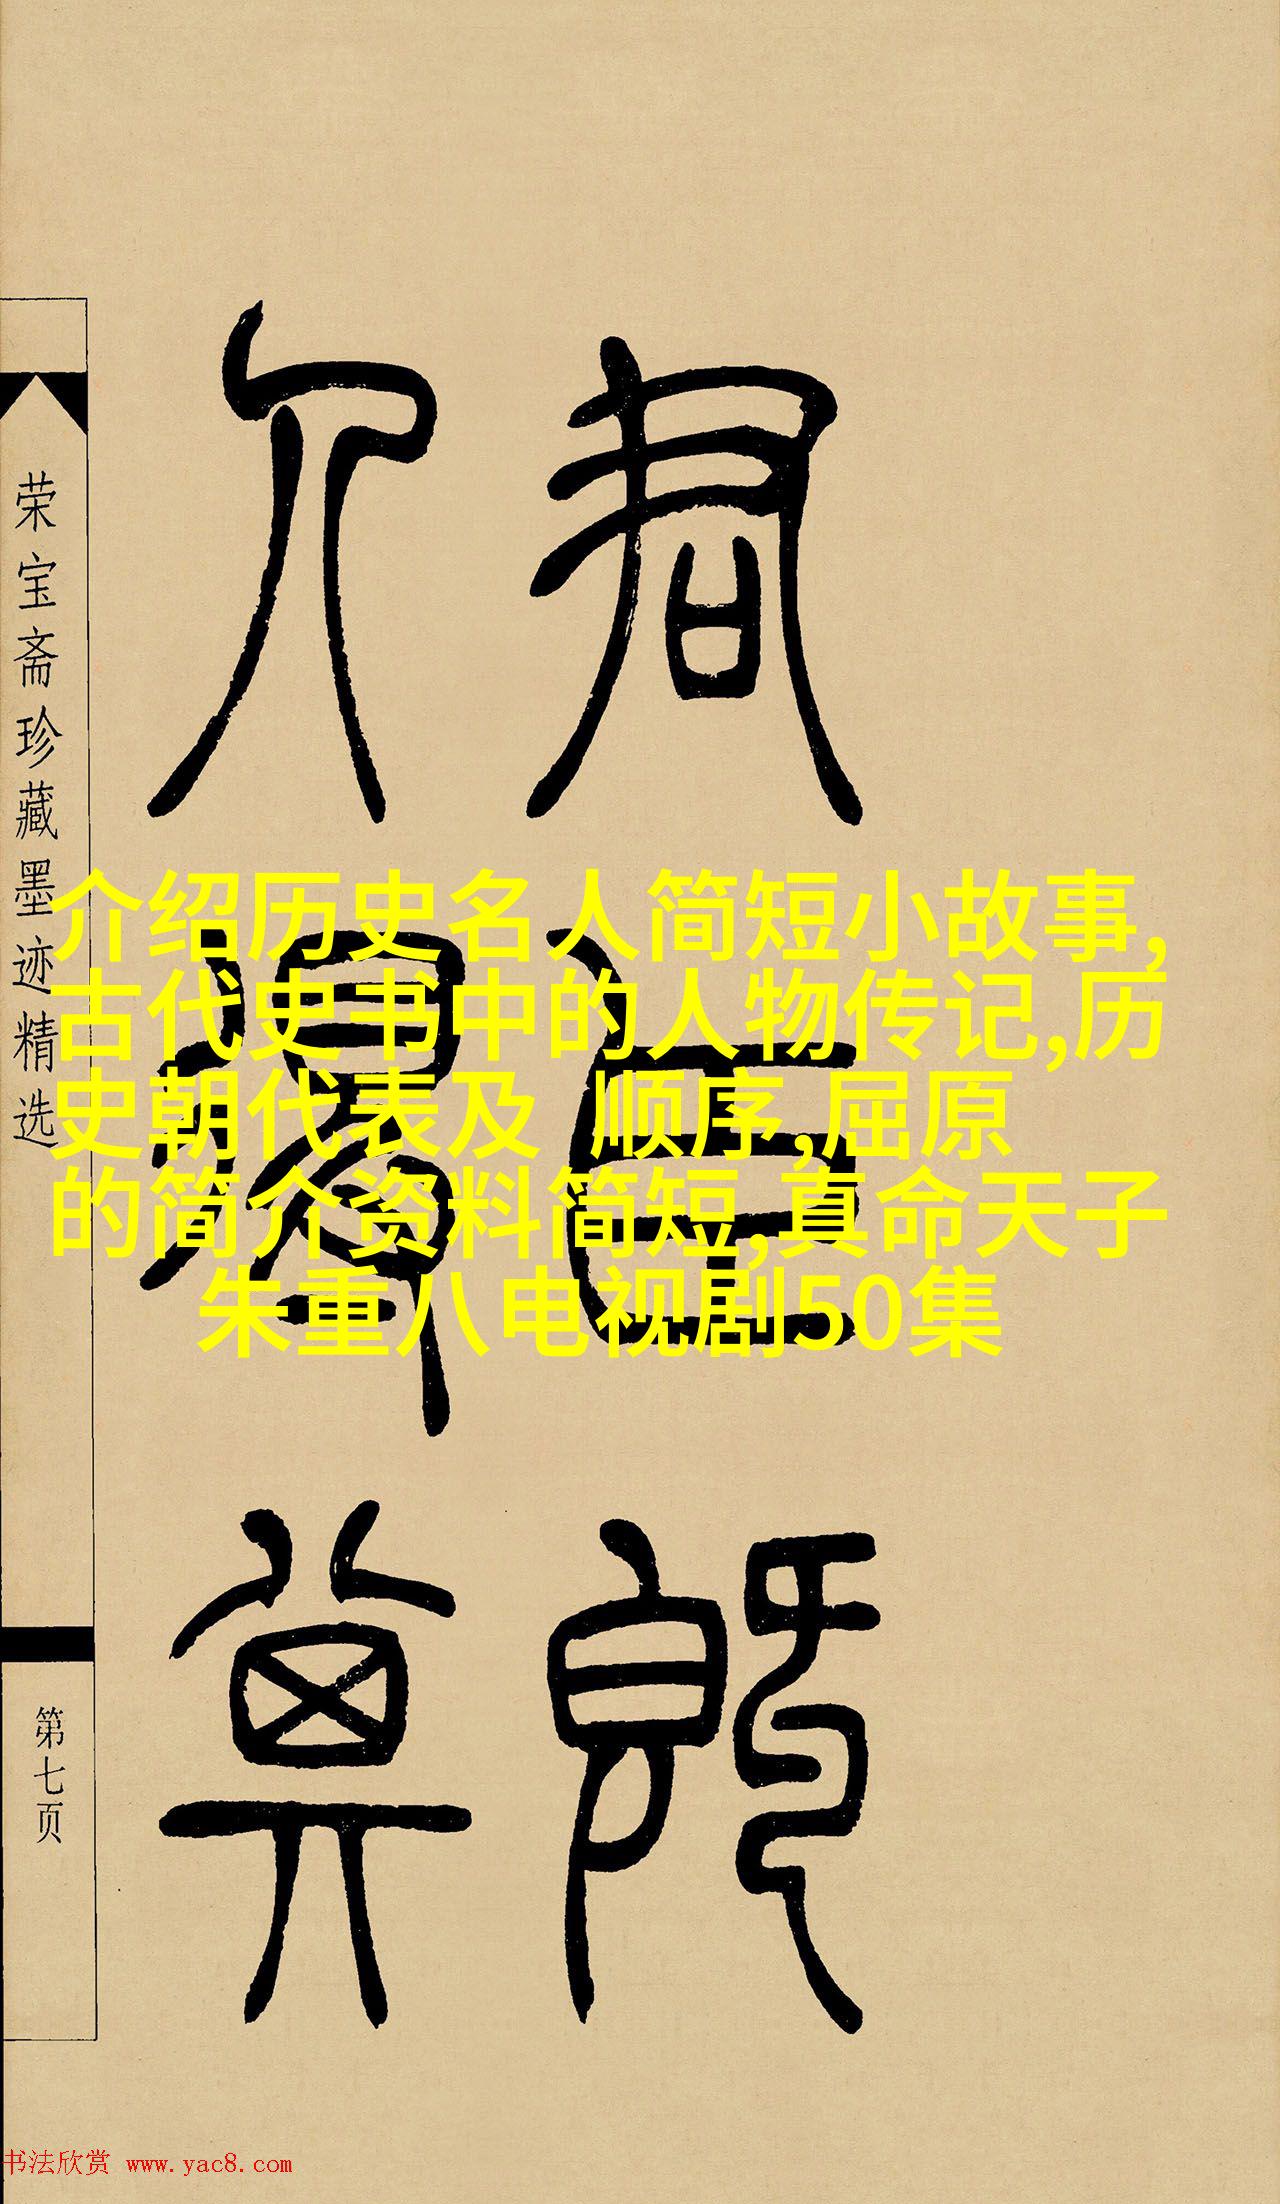 君臣既
荣宝斋珍藏墨迹精选
第七页
介绍历史名人简短小故事,
古代史书中的人物传记,历
史朝代表及 顺序,屈原
的简介资料简短,真命天子
朱重八电视剧50集
书法欣赏 www.yac8.com